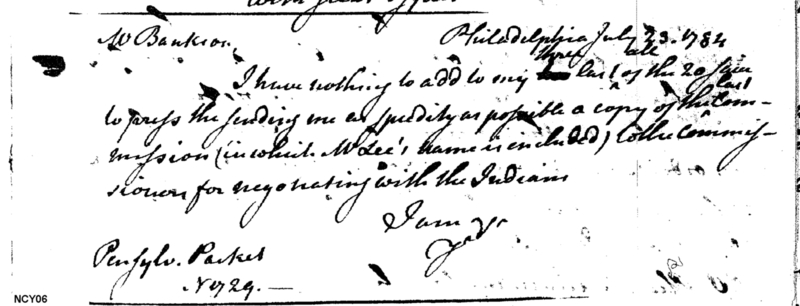 with great
Mr Bankson Philadelphia July 23. 1784
three all
I have nothing to add to my last of the 20 save
last
to press the sending me as speedily as possible a copy of the Com-
mission (in which Mr Lee's name is included) to the Commis-
sioners for negotiating with the Indians
I am Yr
Pensylv. Packet
N 1729. —
NCY06